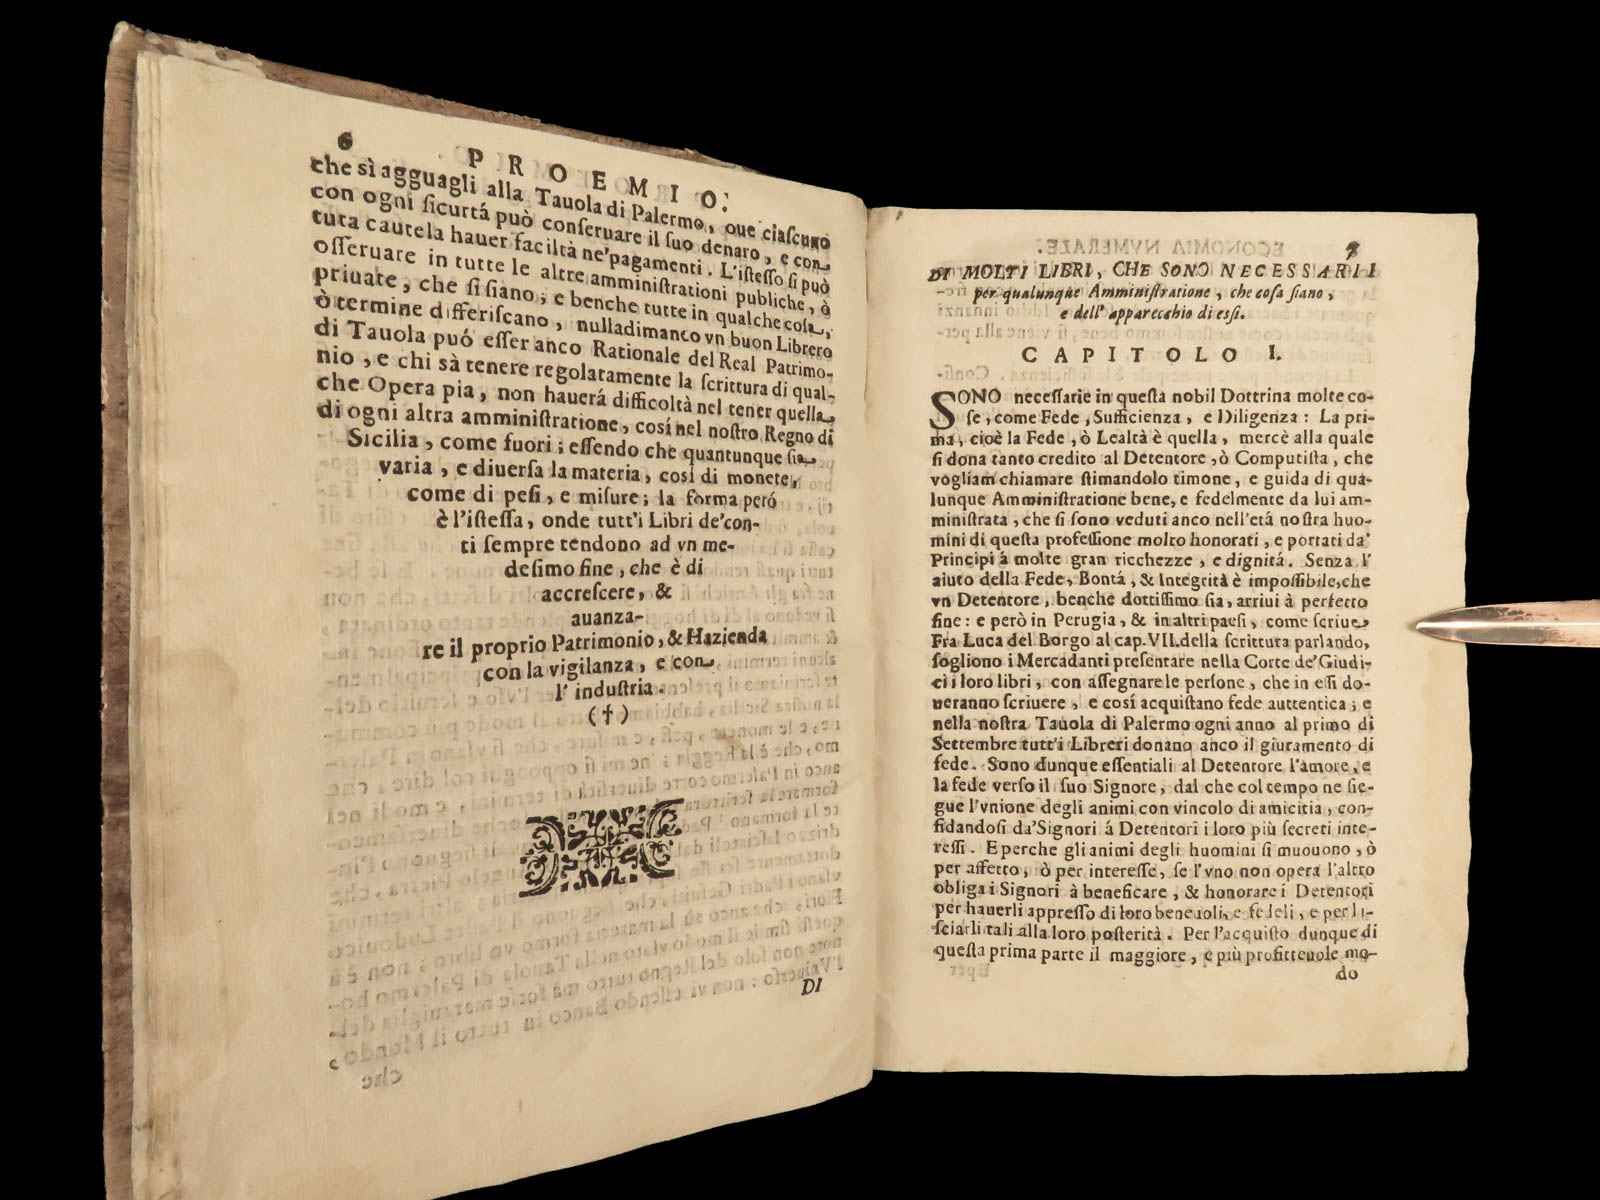 6 PROEMIO.
che sì agguagli alla Tauola di Palermo, oue ciascuno
con ogni sicurtá può conseruare il suo denaro, e con
tuta cautela hauer faciltà ne'pagamenti. L'istesso si può
osseruare in tutte le altre amministrationi publiche, ò
priuate, che si siano; e benche tutte in qualche cosa,
ò termine differiscano, nulladimanco vn buon Librero
di Tauola puó esser anco Rationale del Real Patrimo-
nio, e chi sà tenere regolatamente la scrittura di qual-
che Opera pia, non hauerá difficoltà nel tener quella
di ogni altra amministratione, cosí nel nostro Regno di
Sicilia, come fuori; essendo che quantunque sia
varia, e diuersa la materia, cosí di monete,
come di pesi, e misure; la forma peró
è l'istessa, onde tutt'i Libri de'con-
ti sempre tendono ad vn me-
desimo fine, che è di
accrescere, &
auanza-
re il proprio Patrimonio, & Hazienda
con la vigilanza, e con
l'industria.
(†)
DI
7
DI MOLTI LIBRI, CHE SONO NECESSARII
per qualunque Amministratione, che cosa siano,
e dell'apparecchio di essi.
CAPITOLO I.
SONO necessarie in questa nobil Dottrina molte co-
se, come Fede, Sufficienza, e Diligenza: La pri-
ma, cioè la Fede, ò Lealtà è quella, mercè alla quale
si dona tanto credito al Detentore, ò Computista, che
vogliam chiamare stimandolo timone, e guida di qua-
lunque Amministratione bene, e fedelmente da lui am-
ministrata, che si sono veduti anco nell'etá nostra huo-
mini di questa professione molto honorati, e portati da'
Principi á molte gran ricchezze, e dignitá. Senza l'
aiuto della Fede, Bontá, & Integrità è impossibile, che
vn Detentore, benche dottissimo sia, arriui à perfetto
fine: e però in Perugia, & in altri paesi, come scriue
Fra Luca del Borgo al cap. VII. della scrittura parlando,
sogliono i Mercadanti presentare nella Corte de'Giudi-
ci i loro libri, con assegnarele persone, che in essi do-
ueranno scriuere, e cosí acquistano fede auttentica; e
nella nostra Tauola di Palermo ogni anno al primo di
Settembre tutt'i Libreri donano anco il giuramento di
fede. Sono dunque essentiali al Detentore l'amore, e
la fede verso il suo Signore, dal che col tempo ne sie-
gue l'vnione degli animi con vincolo di amicitia, con-
fidandosi da'Signori á Detentori i loro più secreti inte-
ressi. E perche gli animi degli huomini si muouono, ò
per affetto, ò per interesse, se l'vno non opera l'altro
obliga i Signori à beneficare, & honorare i Detentori
per hauerli appresso di loro beneuoli, e fedeli, e per la-
sciarli tali alla loro posterità. Per l'acquisto dunque di
questa prima parte il maggiore, e più profitteuole mo-
do